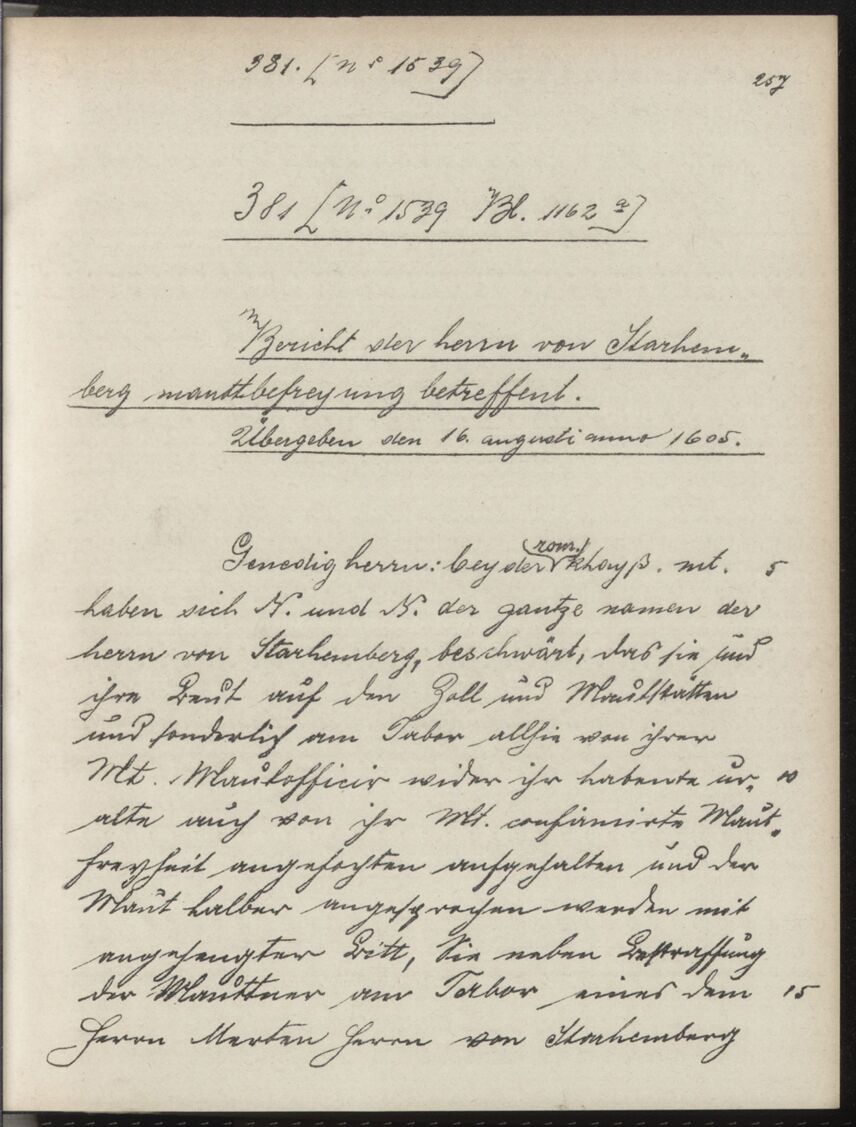 381. [No 1539]
257
381 [No. 1539 Bl. 1162 a]
Bericht der herrn von Starhem„
berg mauttbefreyung betreffent.
Übergeben den 16. augusti anno 1605.
Genedig herrn: bey der röm. khayß. mt. 5
haben sich N. und N. der gantze namen der
herrn von Starhemberg, beschwärt, das sie und
ihre Leut auf den Zoll und Mautstätten
und sonderlich am Tabor allhie von ihrer
Mt. Mautofficir wider ihr habente ur„ 10
alte auch von ihr Mt. confirmirte Maut„
freyheit angefochten aufgehalten und der
Maut halber angesprochen werden mit
angehengter Bitt, Sie neben Bestraffung
der Mauttner am Tabor eines dem 15
Herrn Merten Herrn von Starhemberg